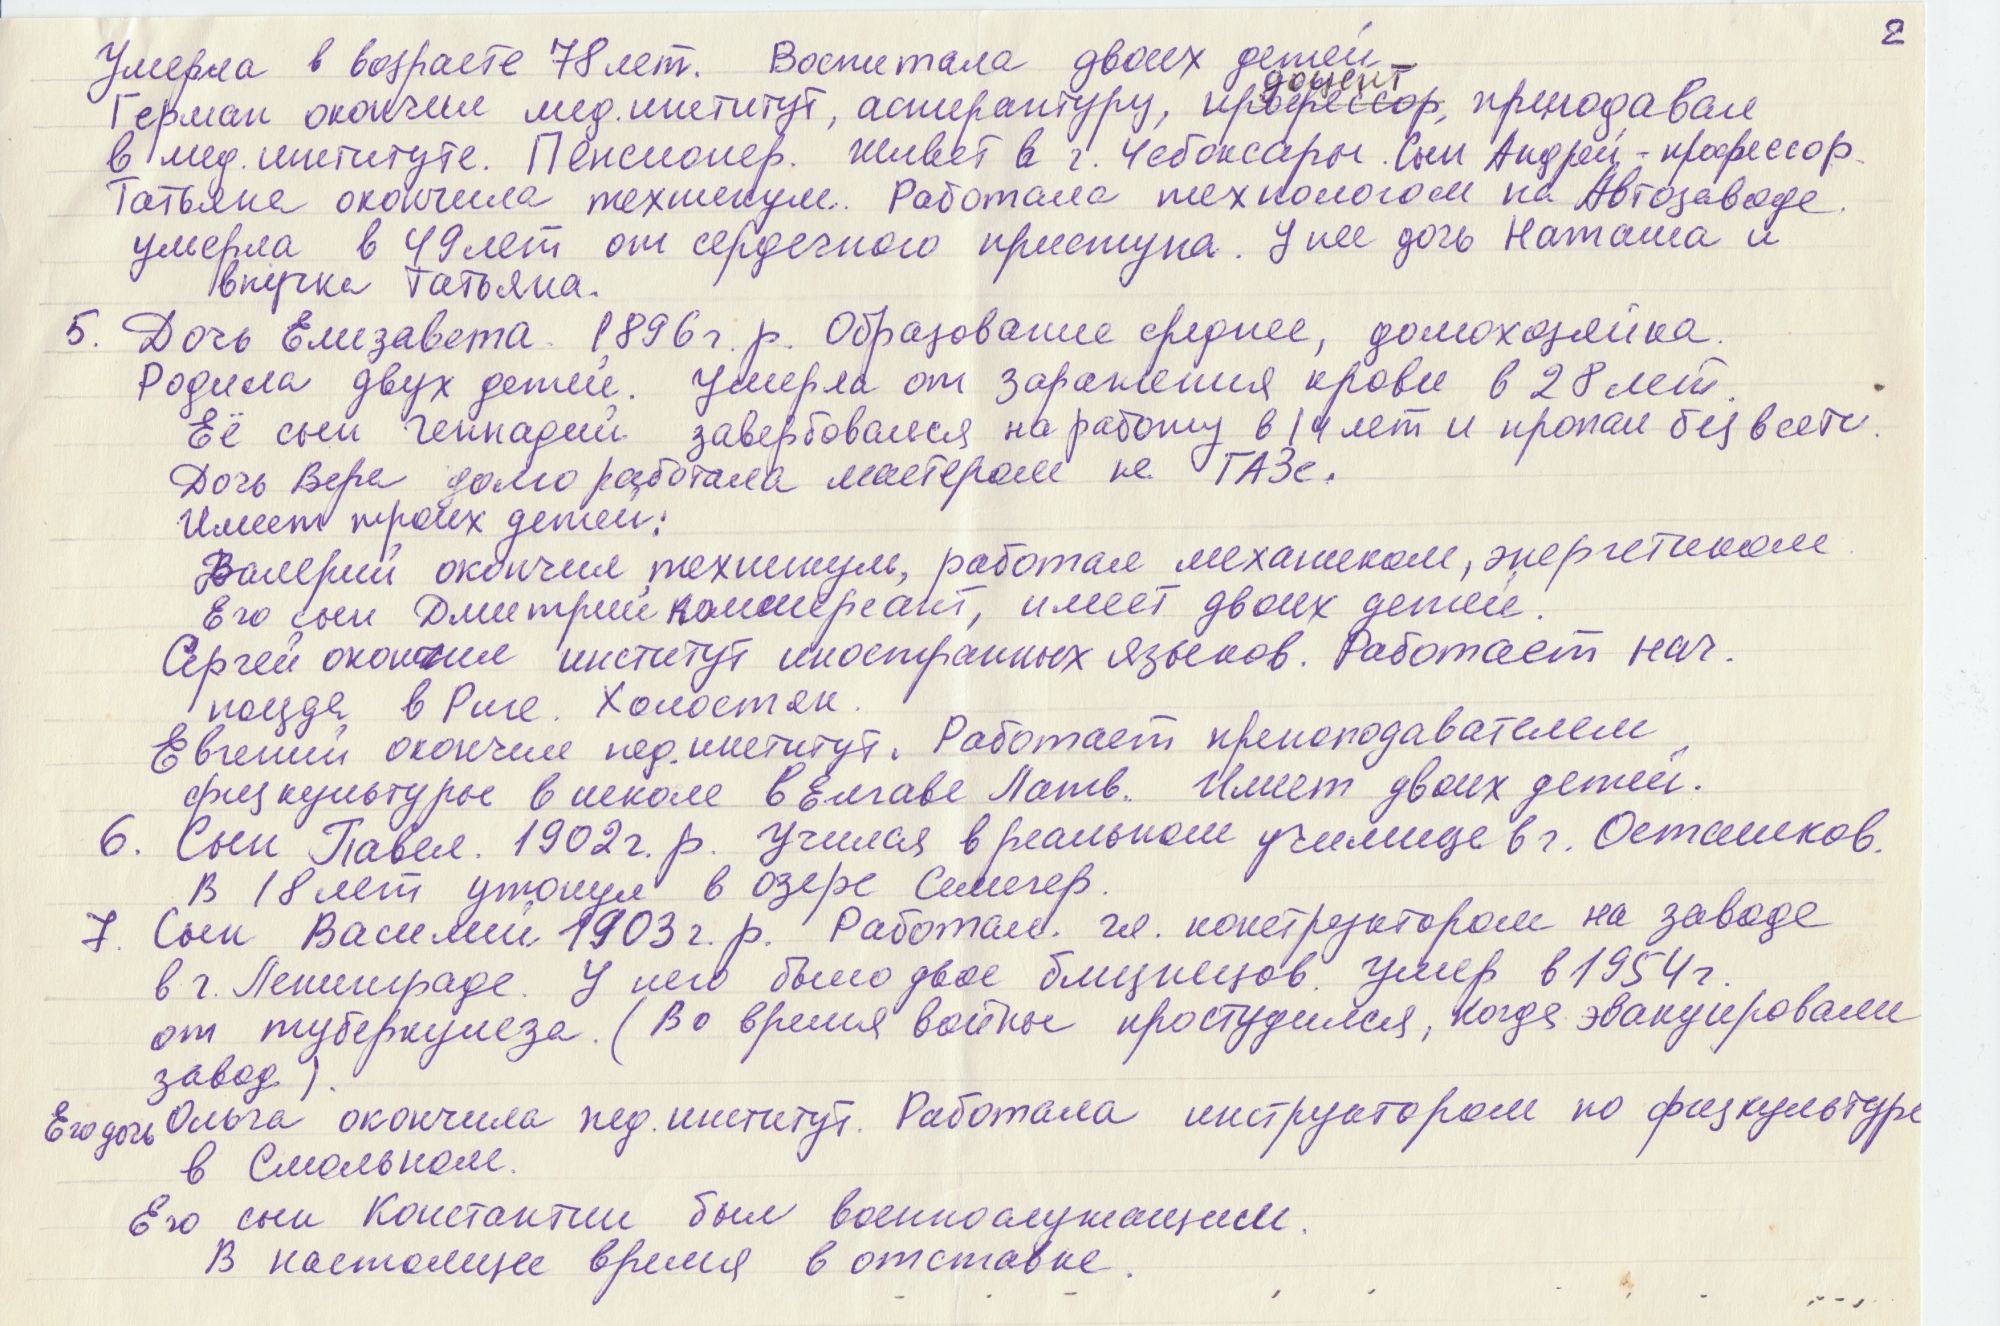 2
Умерла в возрасте 78 лет. Воспитала двоих детей
доцент
Герман окончил мед. институт, аспирантуру, профессор, преподавал
в мед. институте. Пенсионер. Живет в г. Чебоксары. Сын Андрей - профессор.
Татьяна окончила техникум. Работала технологом на Автозаводе.
умерла в 49 лет от сердечного приступа. У нее дочь Наташа и
внучка Татьяна.
5. Дочь Елизавета. 1896 г. р. Образование среднее, домохозяйка.
Родила двух детей. Умерла от заражения крови в 28 лет.
Её сын Геннадий завербовался на работу в 14 лет и пропал без вести.
Дочь Вера долго работала мастером на ГАЗе.
Имеет троих детей:
Валерий окончил техникум, работал механиком, энергетиком.
Его сын Дмитрий коммерсант, имеет двоих детей.
Сергей окончил институт иностранных языков. Работает нач.
поезда в Риге. Холостяк.
Евгений окончил пед. институт. Работает преноподавателем
физкультуры в школе в Елгаве Латв. Имеет двоих детей.
6. Сын Павел. 1902 г. р. Учился в реальном училище в г. Осташков.
В 18 лет утонул в озере Селигер.
7. Сын Василий 1903 г. р. Работал. гл. конструктором на заводе
в г. Ленинграде. У него было двое близнецов. Умер в 1954 г.
от туберкулеза. (Во время войны простудился, когда эвакуировали
завод).
Его дочь Ольга окончила пед. институт. Работала инструктором по физкультуре
в Смольном.
Его сын Константин был военнослужащим.
В настоящее время в отставке.